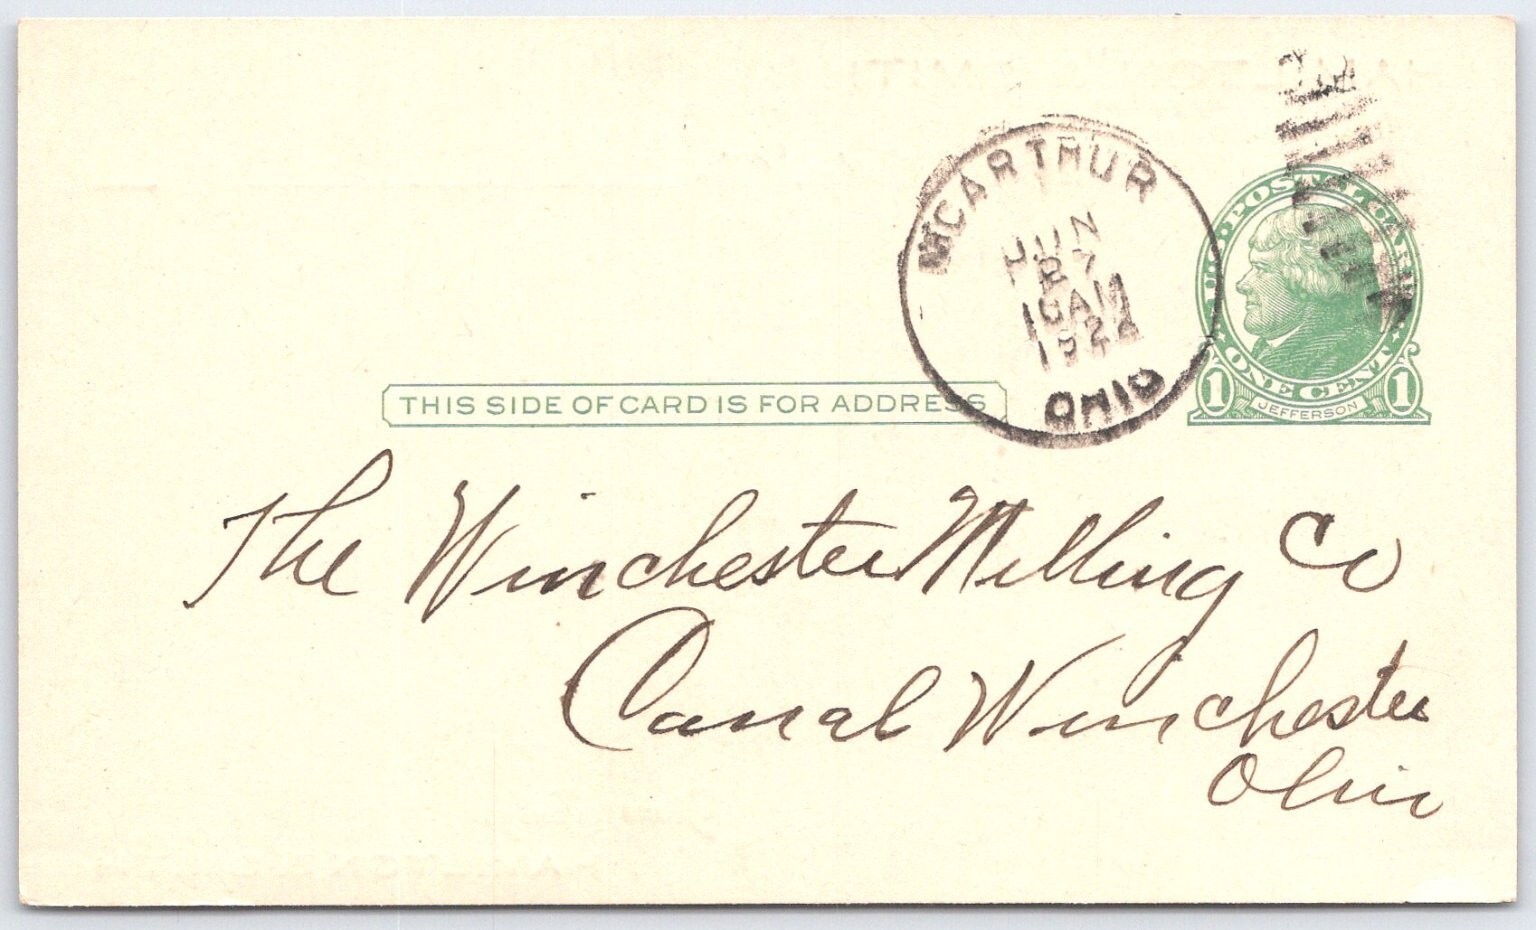 MCARTHUR
JUN
27
10AM
192
OHIO
U.S. POSTAL CARD
ONE CENT
1 JEFFERSON 1
THIS SIDE OF CARD IS FOR ADDRESS
The Winchester Milling Co
Canal Winchester
Ohio